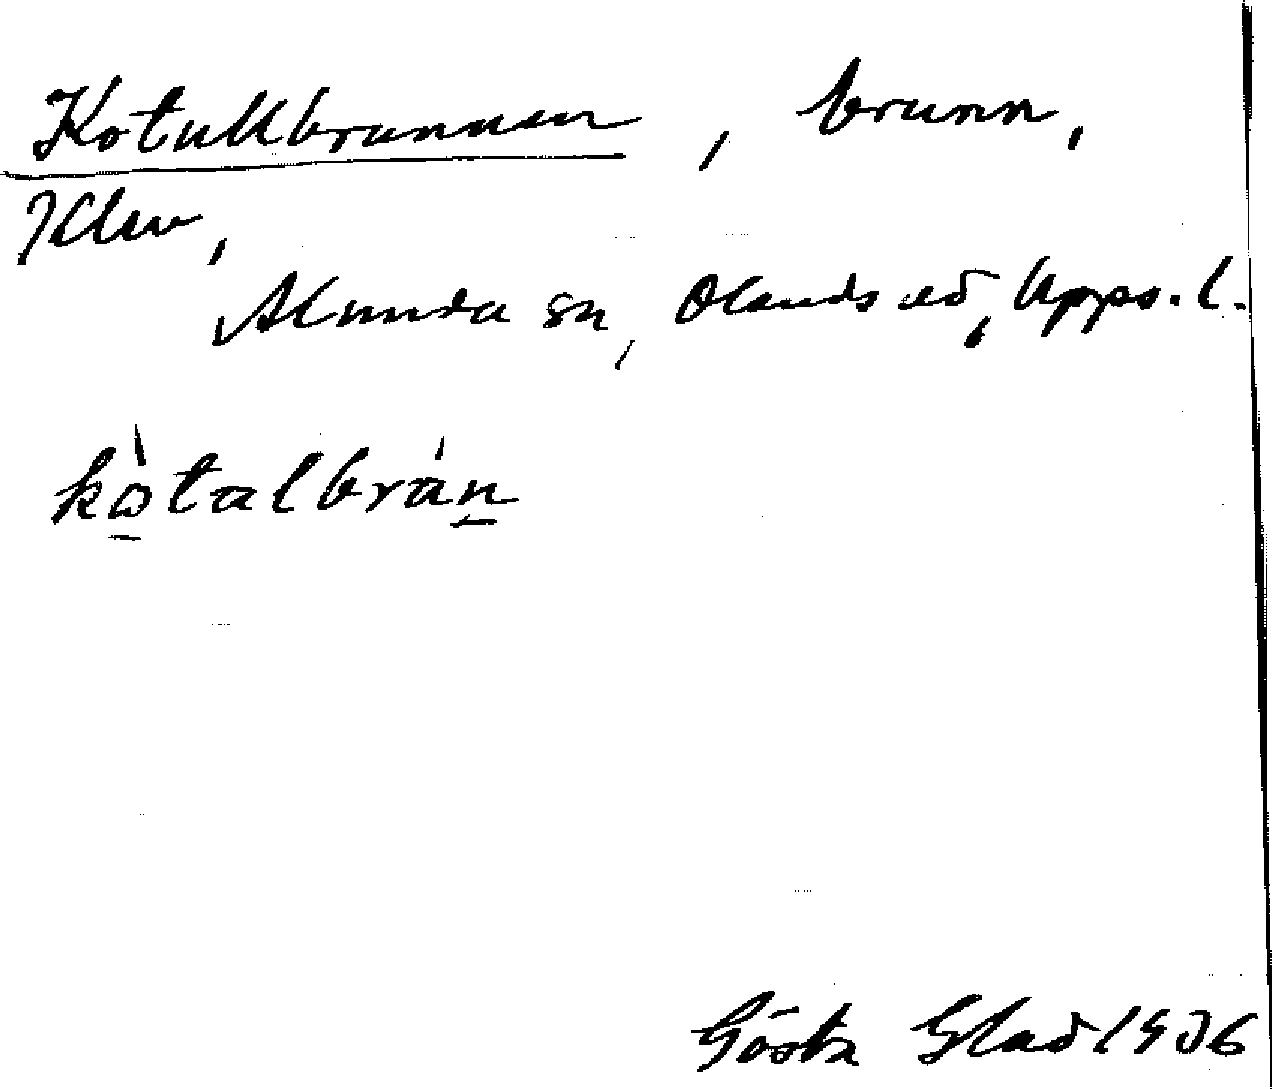 Kotallbrunnen, brunn,
Klev,
Alunda sn, Olands hd, Upps. l.
kòtalbrán
Gösta Glad 1936